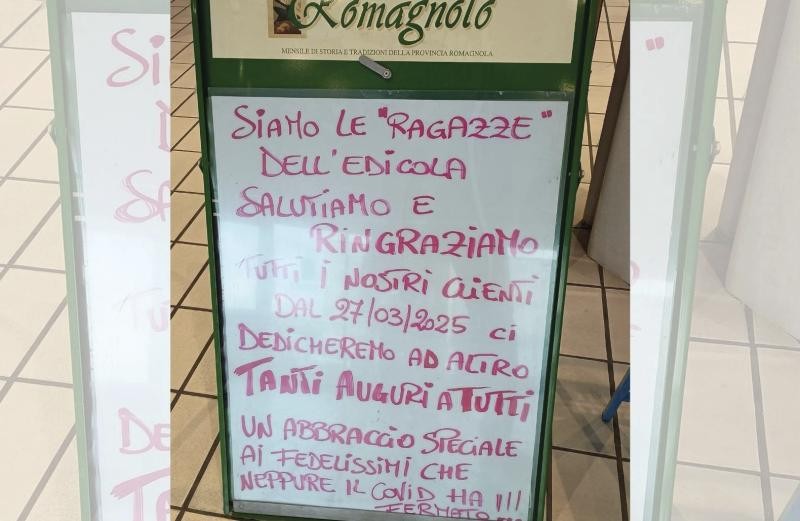 Romagnolo
MENSILE DI STORIA E TRADIZIONI DELLA PROVINCIA ROMAGNOLA
SIAMO LE "RAGAZZE"
DELL'EDICOLA
SALUTIAMO E
RINGRAZIAMO
TUTTI I NOSTRI CLIENTI
DAL 27/03/2025 CI
DEDICHEREMO AD ALTRO
TANTI AUGURI A TUTTI
UN ABBRACCIO SPECIALE
AI FEDELISSIMI CHE
NEPPURE IL COVID HA !!!
FERMATO...